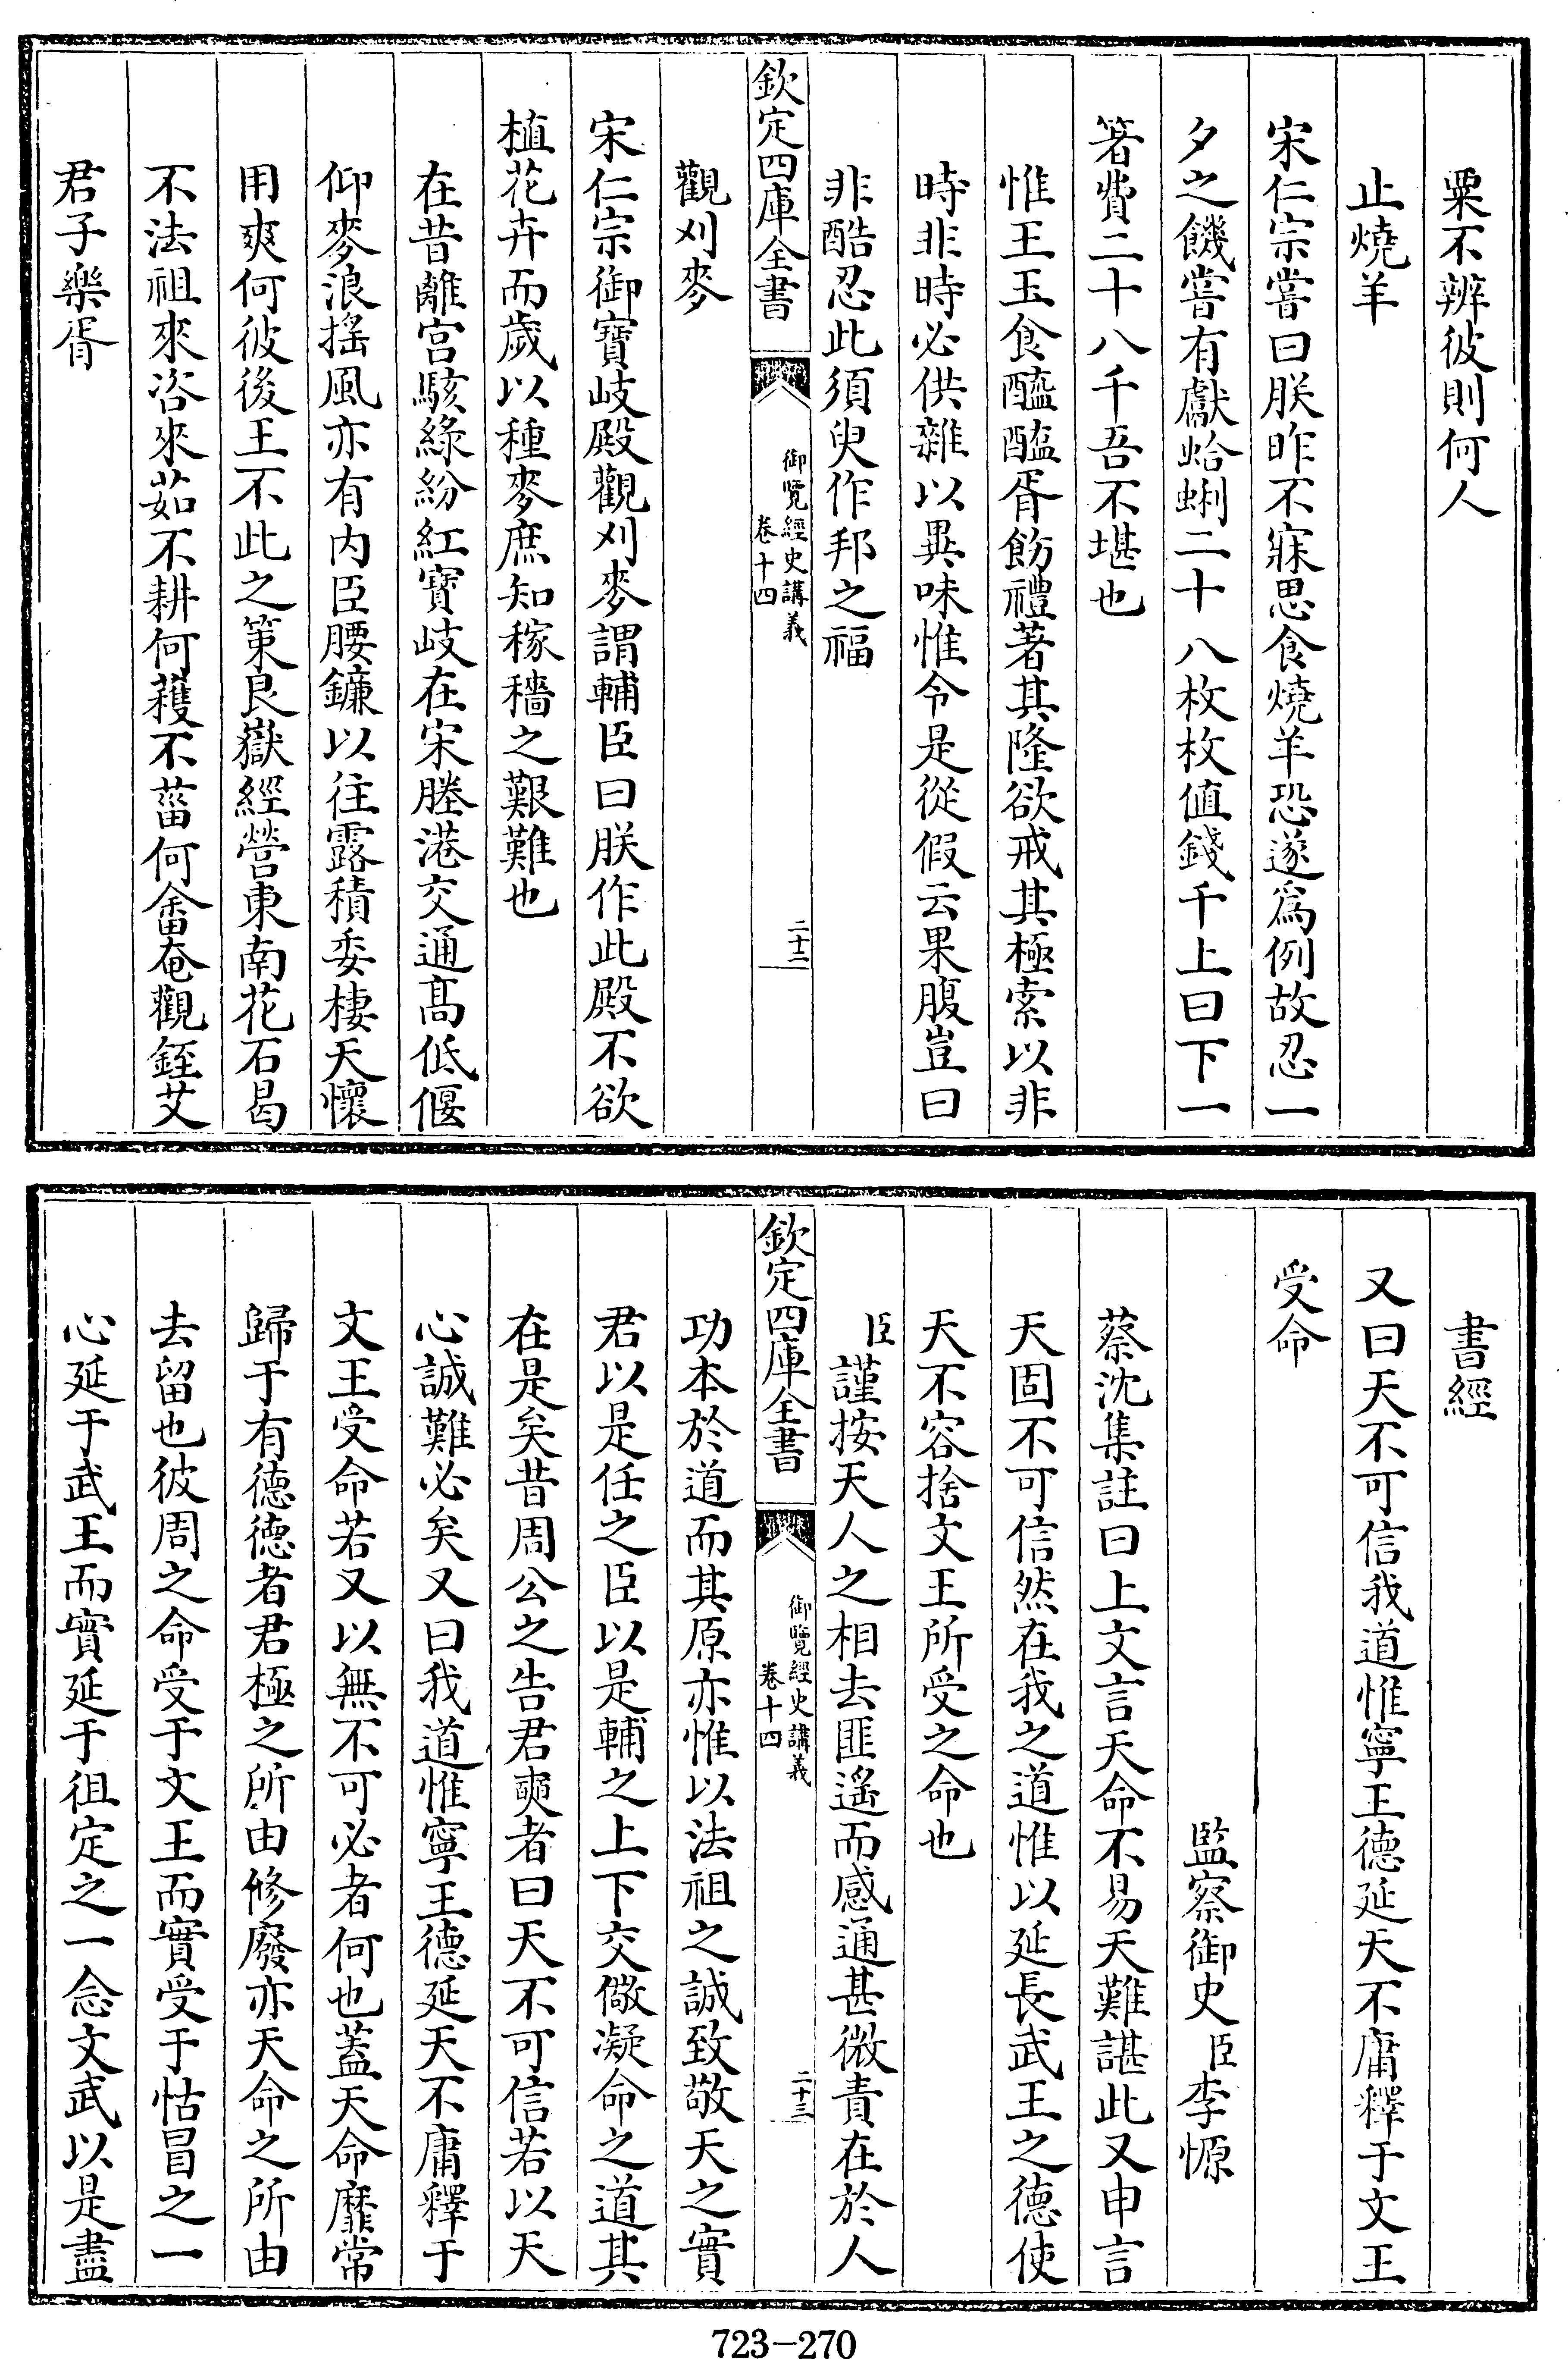 粟不辨彼則何人
止燒羊
宋仁宗嘗曰朕昨不寐思食燒羊恐遂爲例故忍一
夕之饑嘗有獻蛤蜊二十八枚枚值錢千上曰下一
箸費二十八千吾不堪也
惟王玉食醯醢胥飭禮著其隆欲戒其極索以非
時非時必供雜以異味惟令是從假云果腹豈曰
非酷忍此須臾作邦之福
欽定四庫全書
御覽經史講義
卷十四
二十二
觀刈麥
宋仁宗御寶岐殿觀刈麥謂輔臣曰朕作此殿不欲
植花卉而歲以種麥庶知稼穡之艱難也
在昔離宮駭綠紛紅寶岐在宋塍港交通髙低偃
仰麥浪搖風亦有内臣腰鐮以往露積委棲天懷
用爽何彼後王不此之策艮嶽經營東南花石曷
不法祖來咨來茹不耕何穫不菑何畬奄觀銍艾
君子樂胥
書經
又曰天不可信我道惟寧王德延天不庸釋于文王
受命
監察御史臣李㥳
蔡沈集註曰上文言天命不易天難諶此又申言
天固不可信然在我之道惟以延長武王之德使
天不容捨文王所受之命也
臣謹按天人之相去匪遙而感通甚微責在於人
欽定四庫全書
御覽經史講義
卷十四
二十三
功本於道而其原亦惟以法祖之誠致敬天之實
君以是任之臣以是輔之上下交儆凝命之道其
在是矣昔周公之告君奭者曰天不可信若以天
心誠難必矣又曰我道惟寧王德延天不庸釋于
文王受命若又以無不可必者何也蓋天命靡常
歸于有德德者君極之所由修廢亦天命之所由
去留也彼周之命受于文王而實受于怙冒之一
心延于武王而實延于徂定之一念文武以是盡
723-270